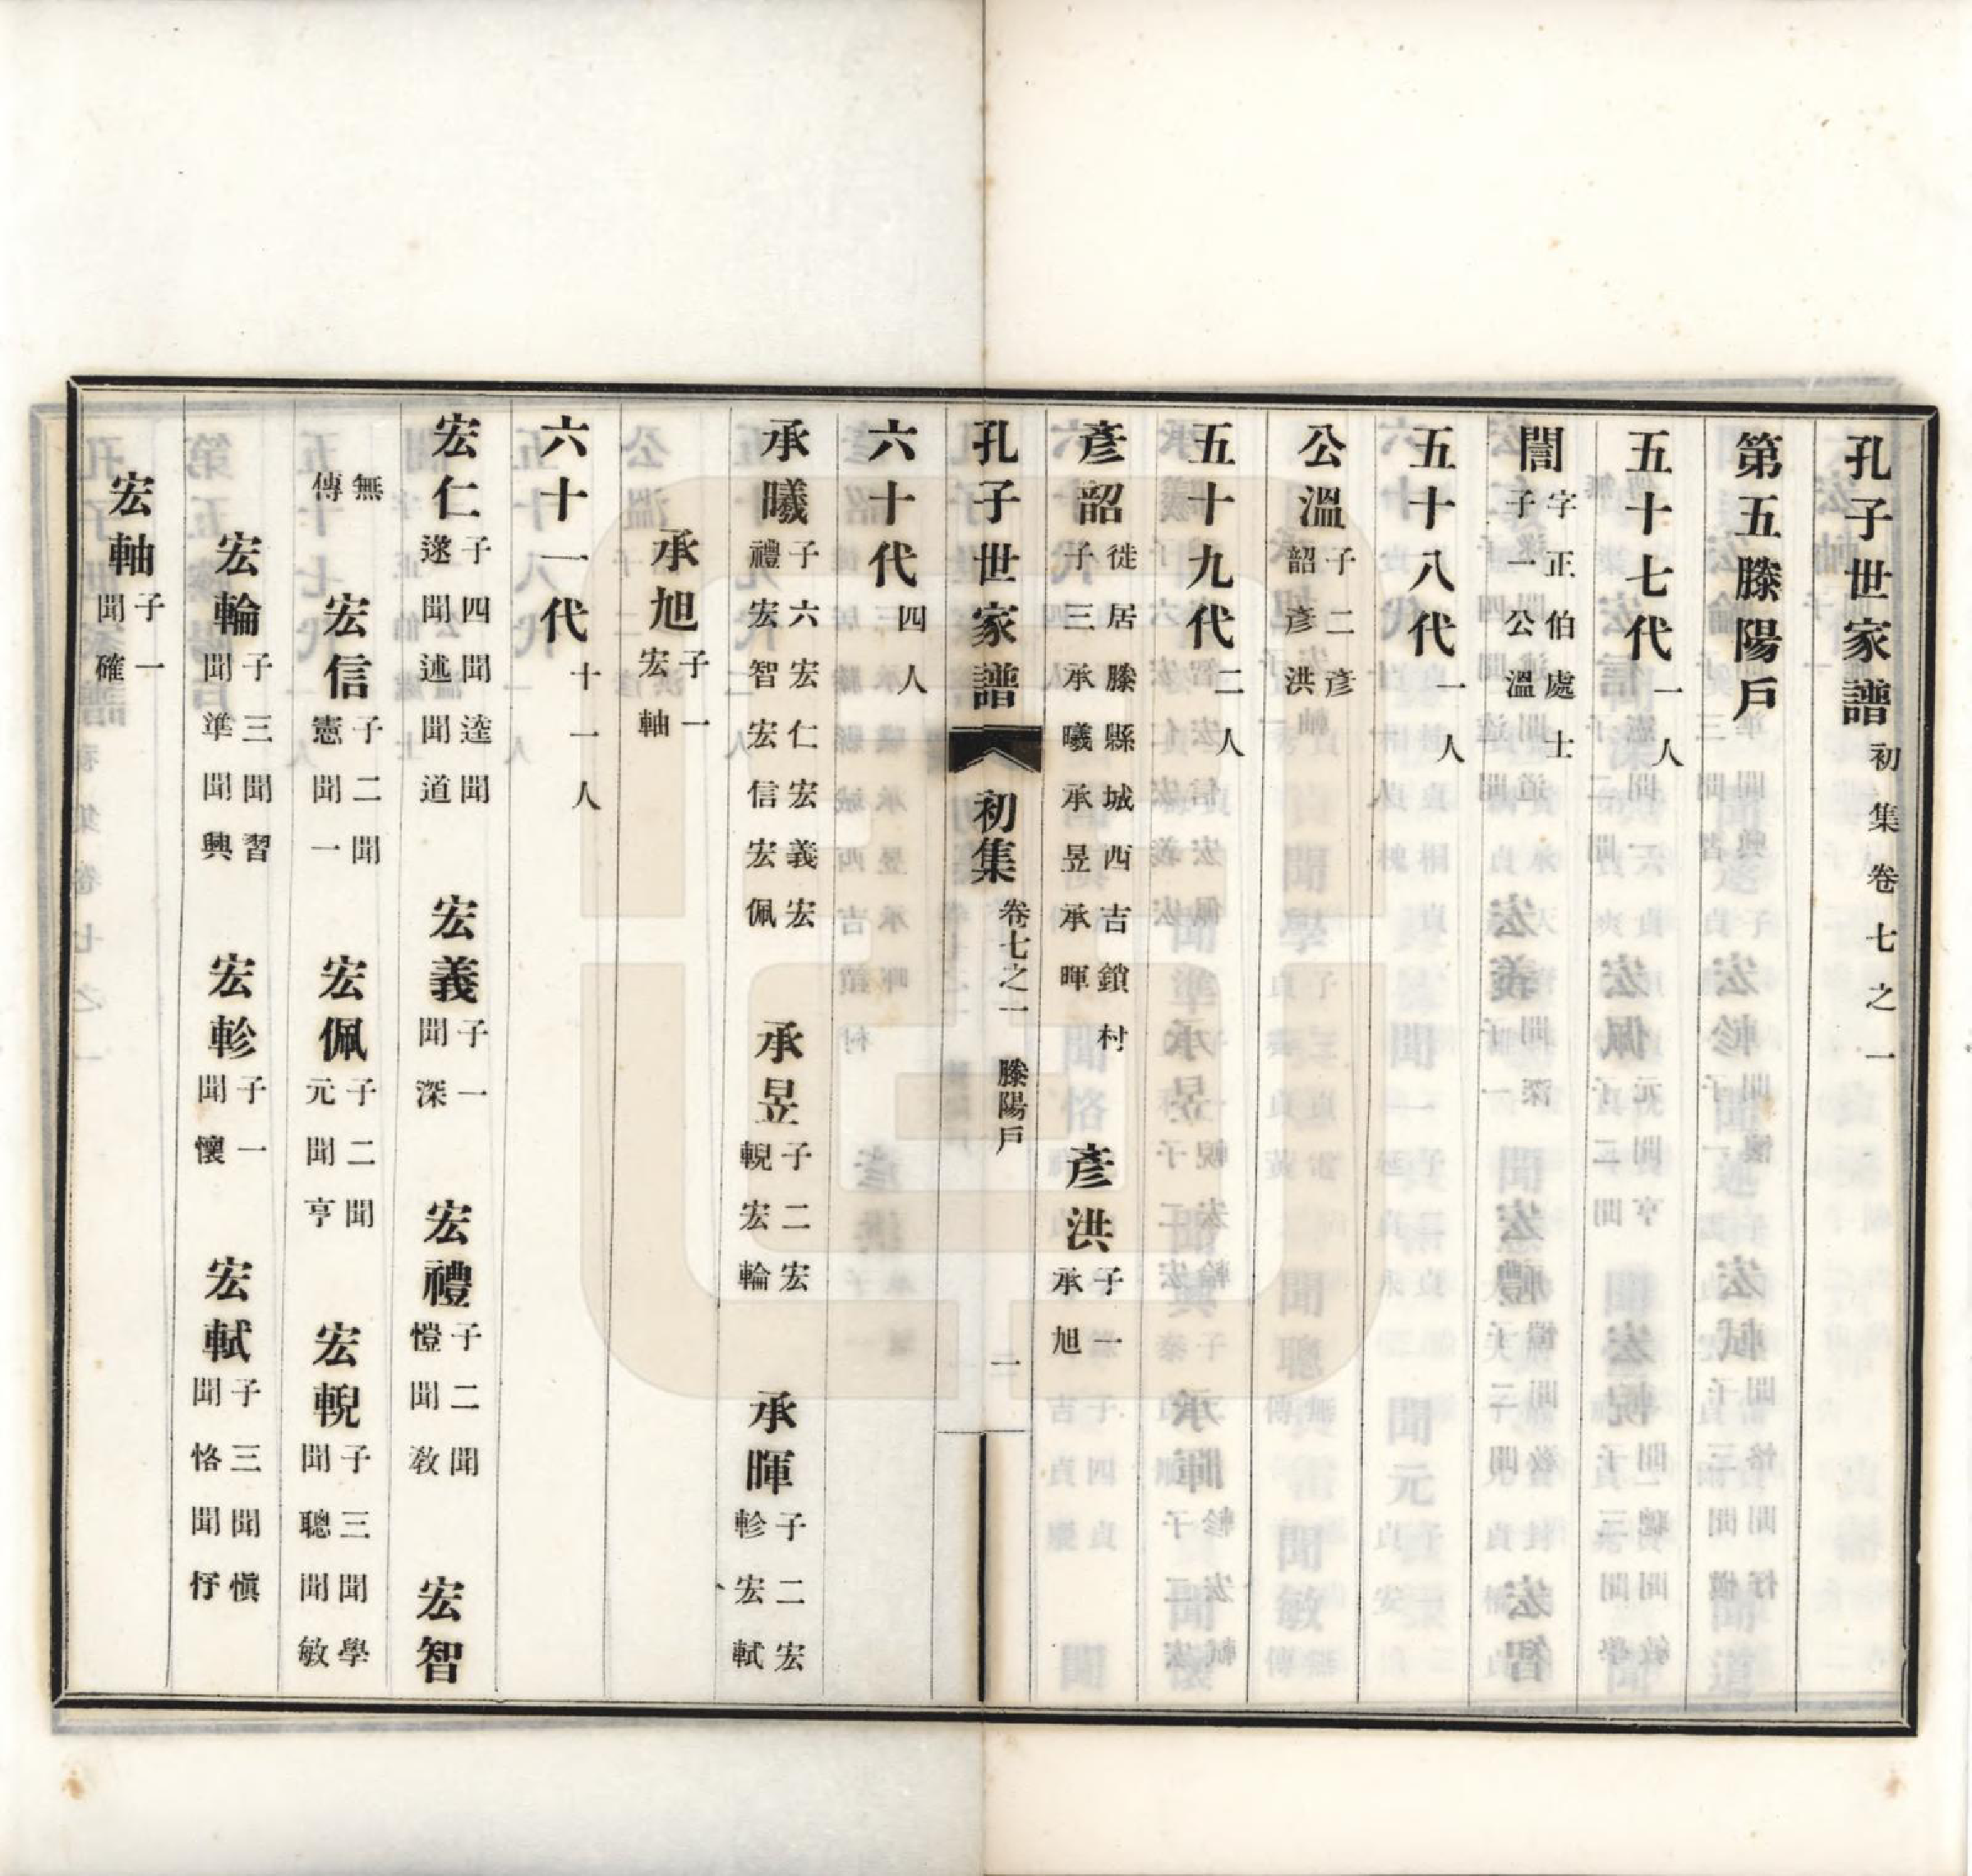 孔子世家譜初集卷七之一
第五滕陽戶
五十七代一人
誾字正伯處士子一公溫
五十八代一人
公溫子二彥韶彥洪
五十九代二人
彥韶徙居滕縣城西吉鎖村子三承曦承昱承暉　彥洪子一承旭
孔子世家譜　初集　卷七之一　滕陽戶　二
六十代四人
承曦子六宏仁宏義宏禮宏智宏信宏佩　承昱子二宏輗宏輪　承暉子二宏軫宏軾
承旭子一宏軸
六十一代十一人
宏仁子四聞逵聞遂聞述聞道　宏義子一聞深　宏禮子二聞憕聞教　宏智
無傳　宏信子二聞憲聞一　宏佩子二聞元聞亨　宏輗子三聞學聞聰聞敏
宏輪子三聞習聞準聞興　宏軫子一聞懷　宏軾子三聞愼聞恪聞㤓
宏軸子一聞確